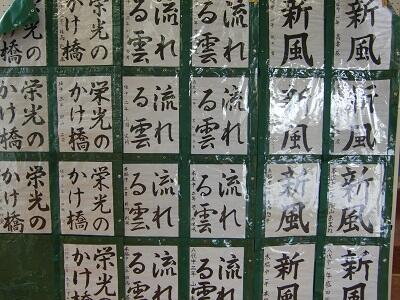 新風
新風
流れ
る雲
流れ
る雲
栄光の
かけ橋
栄光の
かけ橋
新風
新風
流れ
る雲
流れ
る雲
栄光の
かけ橋
栄光の
かけ橋
新風
新風
流れ
る雲
流れ
る雲
栄光の
かけ橋
栄光の
かけ橋
新風
新風
流れ
る雲
流れ
る雲
栄光の
かけ橋